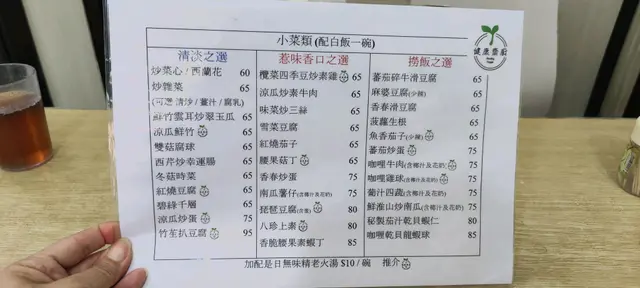 小菜類 (配白飯一碗)
健康素廚
清淡之選
炒菜心 / 西蘭花 60
炒雜菜 65
(可選 清炒 / 薑汁 / 腐乳)
鮮竹雲耳炒翠玉瓜 65
涼瓜鮮竹 65
雙菇腐球 65
西芹炒幸運腸 65
冬菇時菜 65
紅燒豆腐 65
碧綠千層 65
涼瓜炒蛋 75
竹笙扒豆腐 95
惹味香口之選
欖菜四季豆炒素雞 65
涼瓜炒素牛肉 65
味菜炒三絲 65
雪菜豆腐 65
紅燒茄子 65
腰果菇丁 65
香春炒蛋 75
南瓜薯仔(含椰汁及花奶) 75
琵琶豆腐(含蛋) 80
八珍上素 80
香脆腰果素蝦丁 85
撈飯之選
蕃茄碎牛滑豆腐 65
麻婆豆腐(少辣) 65
香春滑豆腐 65
菠蘿生根 65
魚香茄子(少辣) 65
蕃茄炒蛋 75
咖喱牛肉(含椰汁及花奶) 75
咖喱雞球(含椰汁及花奶) 75
葡汁四蔬(含椰汁及花奶) 75
鮮淮山炒南瓜(含椰汁及花奶) 75
秘製茄汁乾貝蝦仁 80
咖喱乾貝龍蝦球 85
加配是日無味精老火湯 $10 / 碗 推介